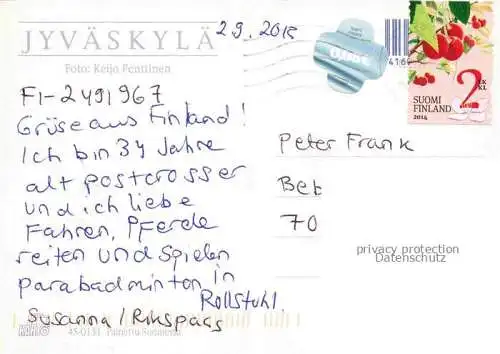 2.9.2015
JYVÄSKYLÄ
Foto: Keijo Penttinen
FI-2491967
Grüse aus Finland!
Ich bin 34 Jahre
alt postcrosser
und ich liebe
Fahren, Pferde
reiten und Spielen
parabadminton in
Rollstuhl.
Susanna / Rikspass
45-0151 Painettu Suomessa
Peter Frank
Bet
70
privacy protection
Datenschutz
2 LK
KL
SUOMI
FINLAND
2014